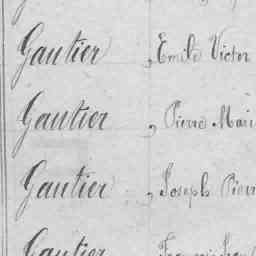 Gautier, Emile Victor
Gautier, Pierre Mari
Gautier, Joseph Pierr
Gautier